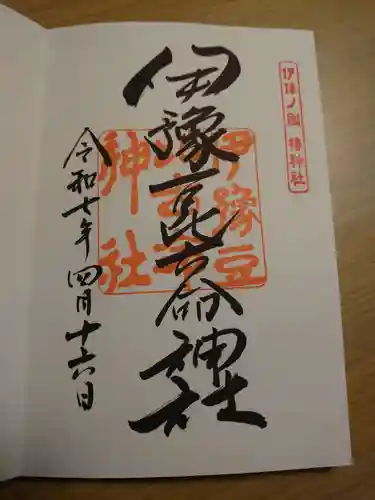 伊豫ノ國 椿神社
伊豫豆比古命神社
伊豫豆
比古命
神社
令和七年四月十六日